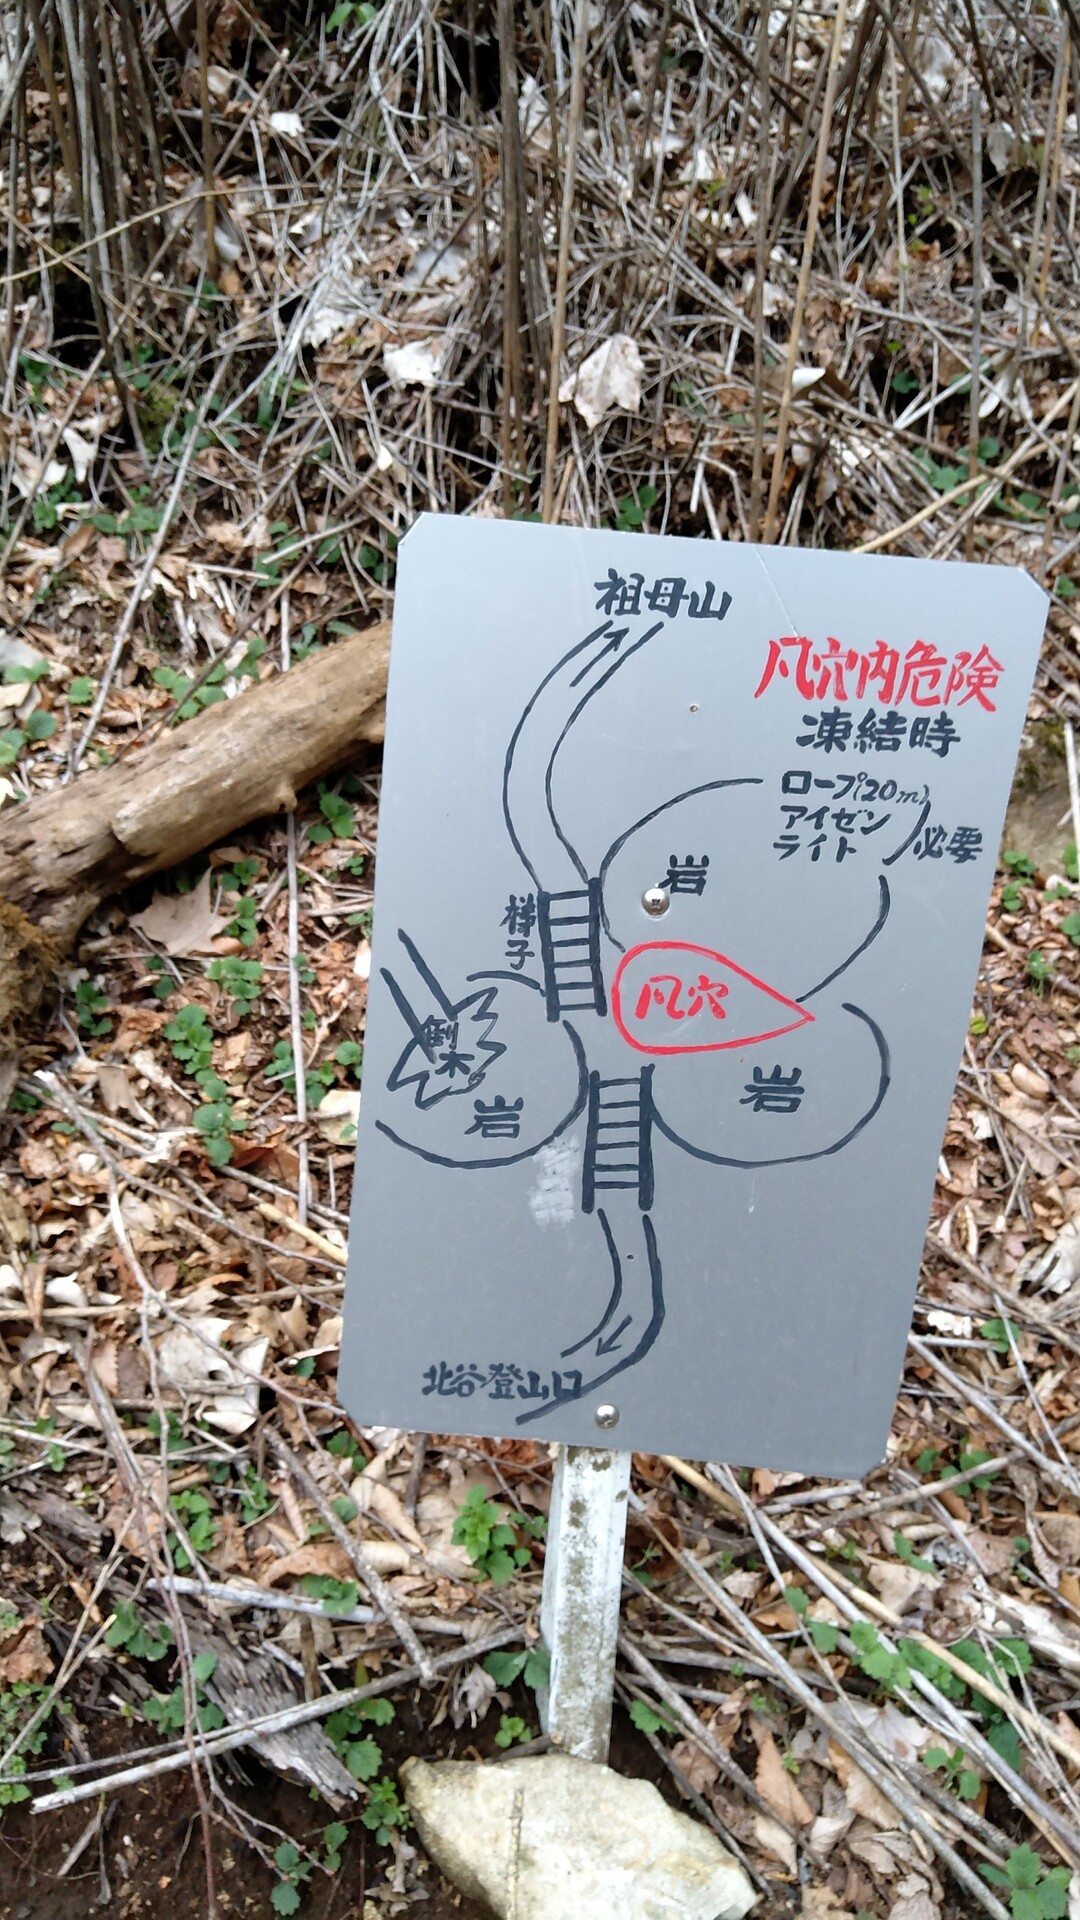 祖母山
風穴内危険
凍結時
ロープ(20m)
アイゼン
ライト
必要
岩
梯子
風穴
倒木
岩
岩
北谷登山口